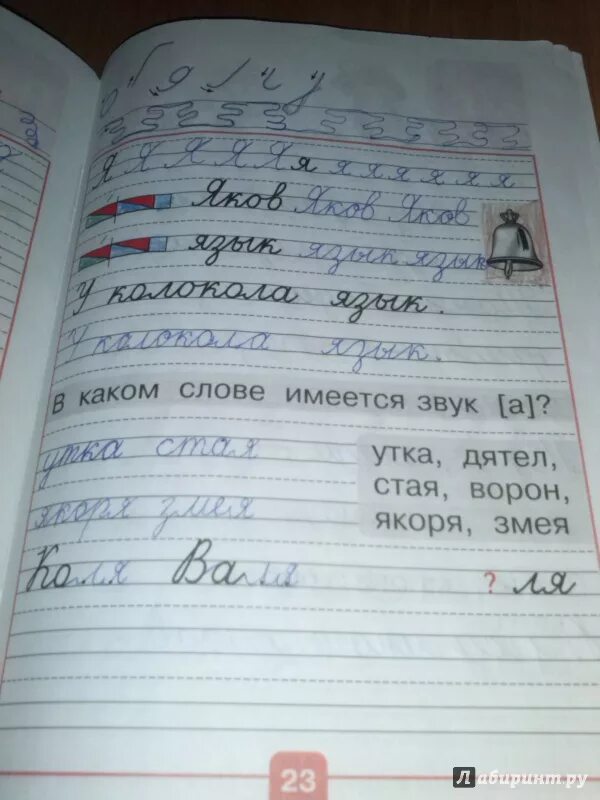 Я Я Я Я Я я я я я я я я
Яков Яков Яков
язык язык язык
У колокола язык.
У колокола язык.
В каком слове имеется звук [а]?
утка стая
якоря змея
утка, дятел,
стая, ворон,
якоря, змея
Коля Валя ? ля
23
Лабиринт.ру